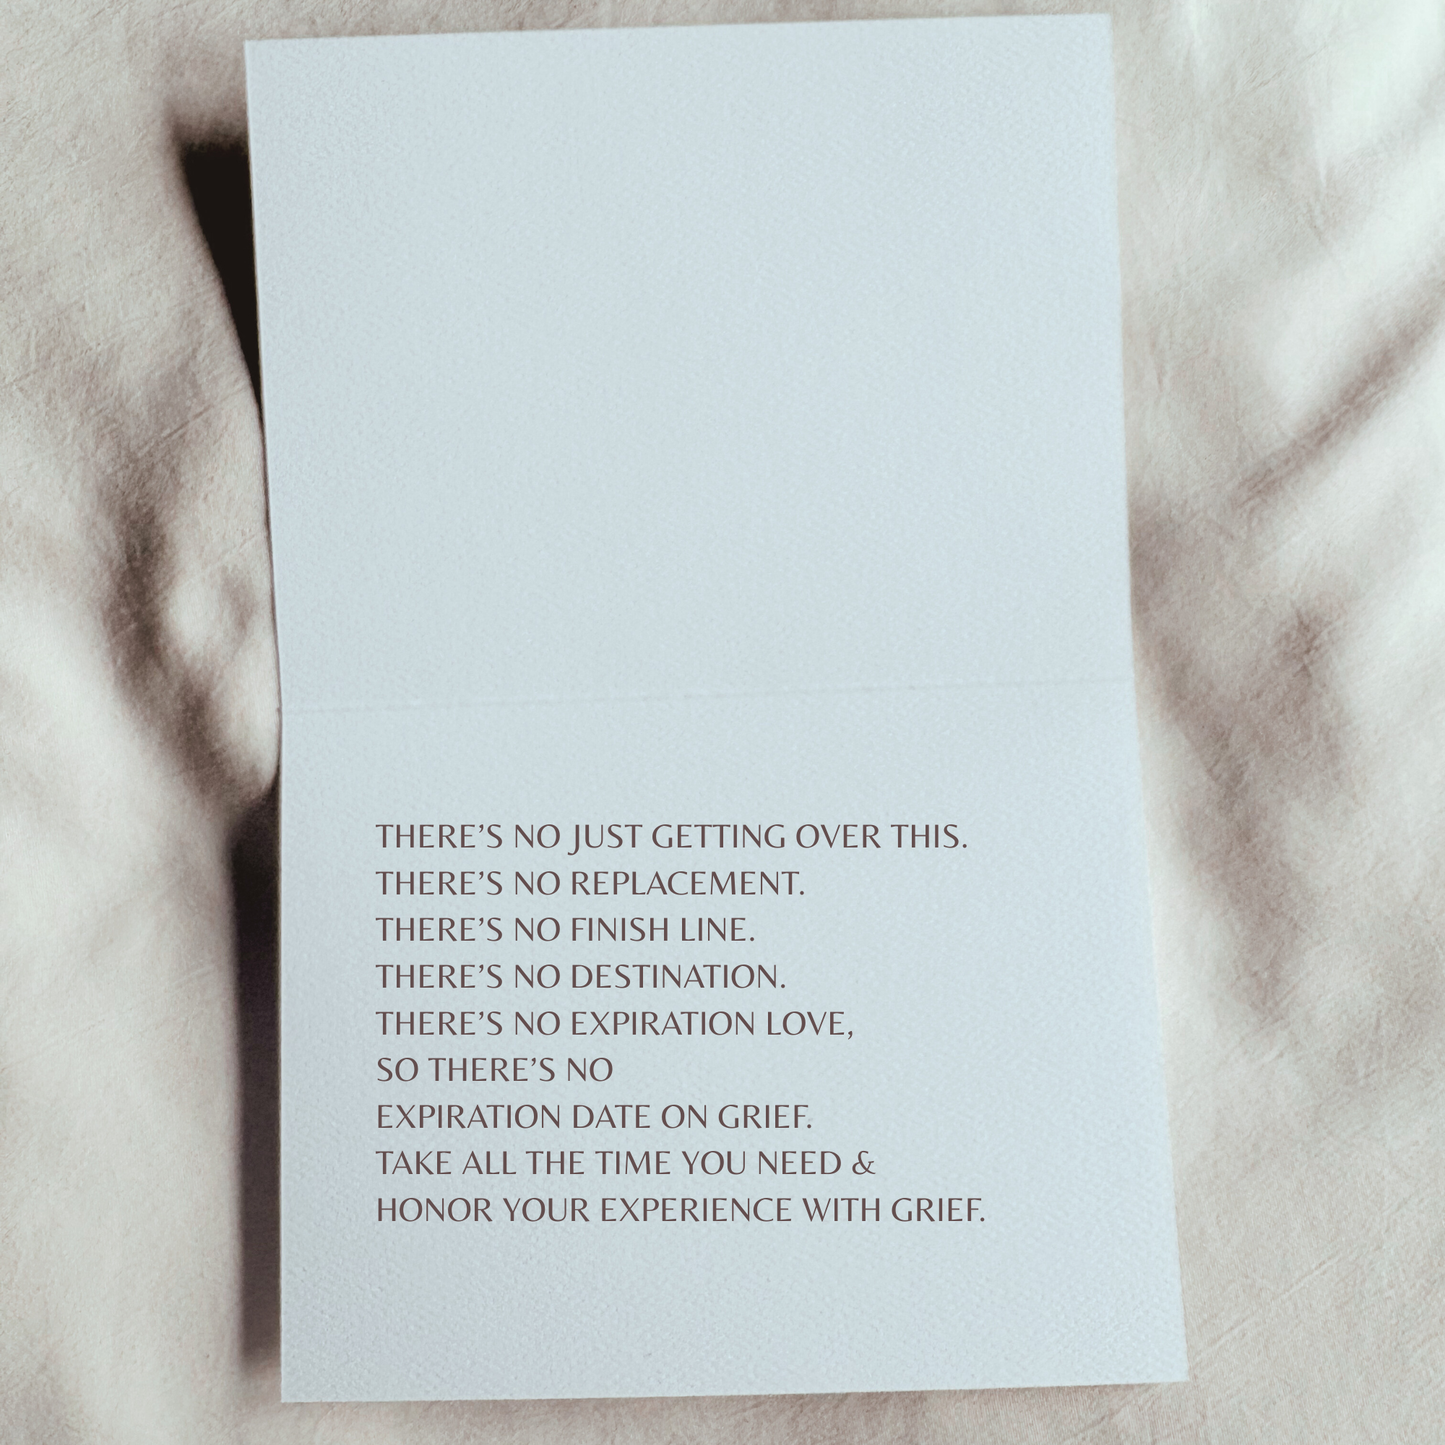 THERE’S NO JUST GETTING OVER THIS.
THERE’S NO REPLACEMENT.
THERE’S NO FINISH LINE.
THERE’S NO DESTINATION.
THERE’S NO EXPIRATION LOVE,
SO THERE’S NO
EXPIRATION DATE ON GRIEF.
TAKE ALL THE TIME YOU NEED &
HONOR YOUR EXPERIENCE WITH GRIEF.